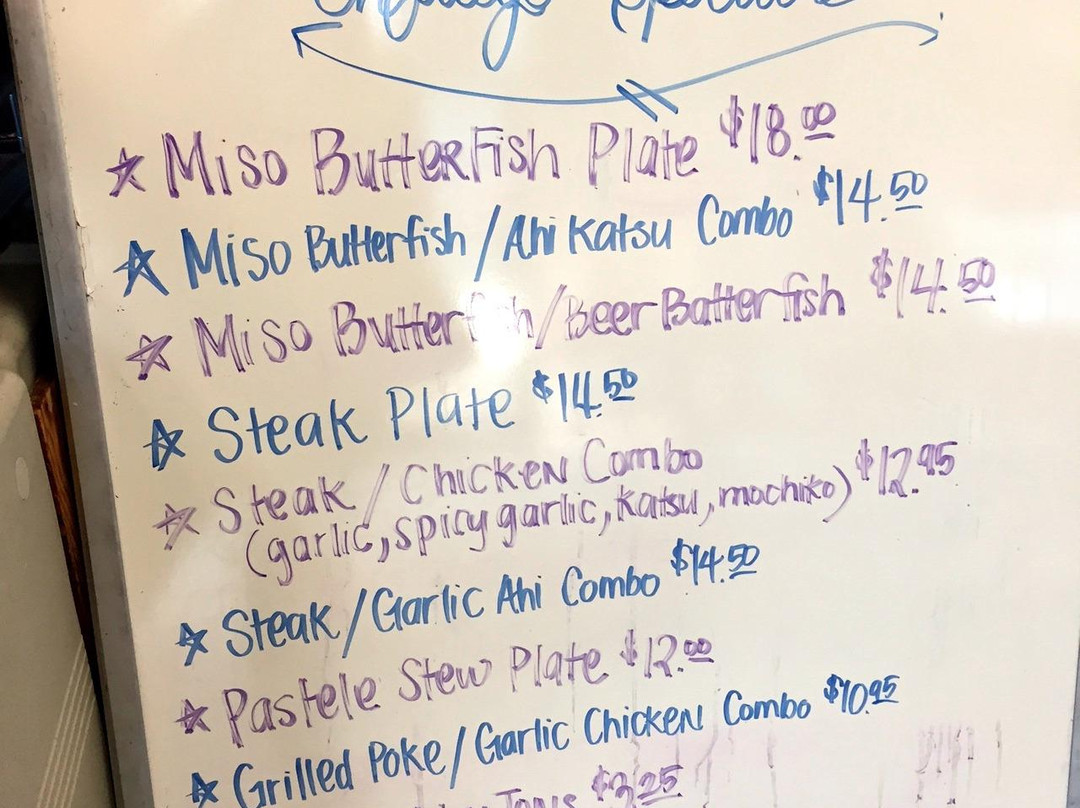 ★ Miso ButterFish Plate $18.00
★ Miso Butterfish/Ahi Katsu Combo $14.50
★ Miso Butterfish/Beer Batterfish $14.50
★ Steak Plate $14.50
★ Steak/Chicken Combo $12.95
(garlic, spicy garlic, katsu, mochiko)
★ Steak/Garlic Ahi Combo $14.50
★ Pastele Stew Plate $12.00
★ Grilled Poke/Garlic Chicken Combo $10.95
$2.25